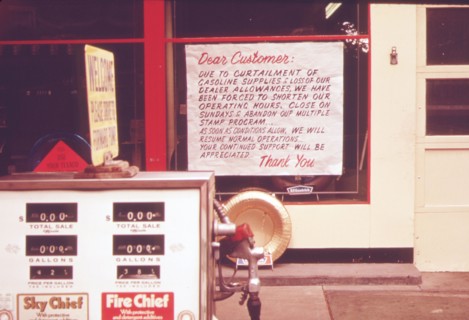 Dear Customer:
DUE TO CURTAILMENT OF
GASOLINE SUPPLIES & LOSS OF OUR
DEALER ALLOWANCES, WE HAVE
BEEN FORCED TO SHORTEN OUR
OPERATING HOURS, CLOSE ON
SUNDAYS & ABANDON OUR MULTIPLE
STAMP PROGRAM....
AS SOON AS CONDITIONS ALLOW, WE WILL
RESUME NORMAL OPERATIONS.
YOUR CONTINUED SUPPORT WILL BE
APPRECIATED
Thank You
WELCOME
TOTAL SALE
TOTAL SALE
GALLONS
GALLONS
PRICE PER GALLON
PRICE PER GALLON
Sky Chief
Fire Chief